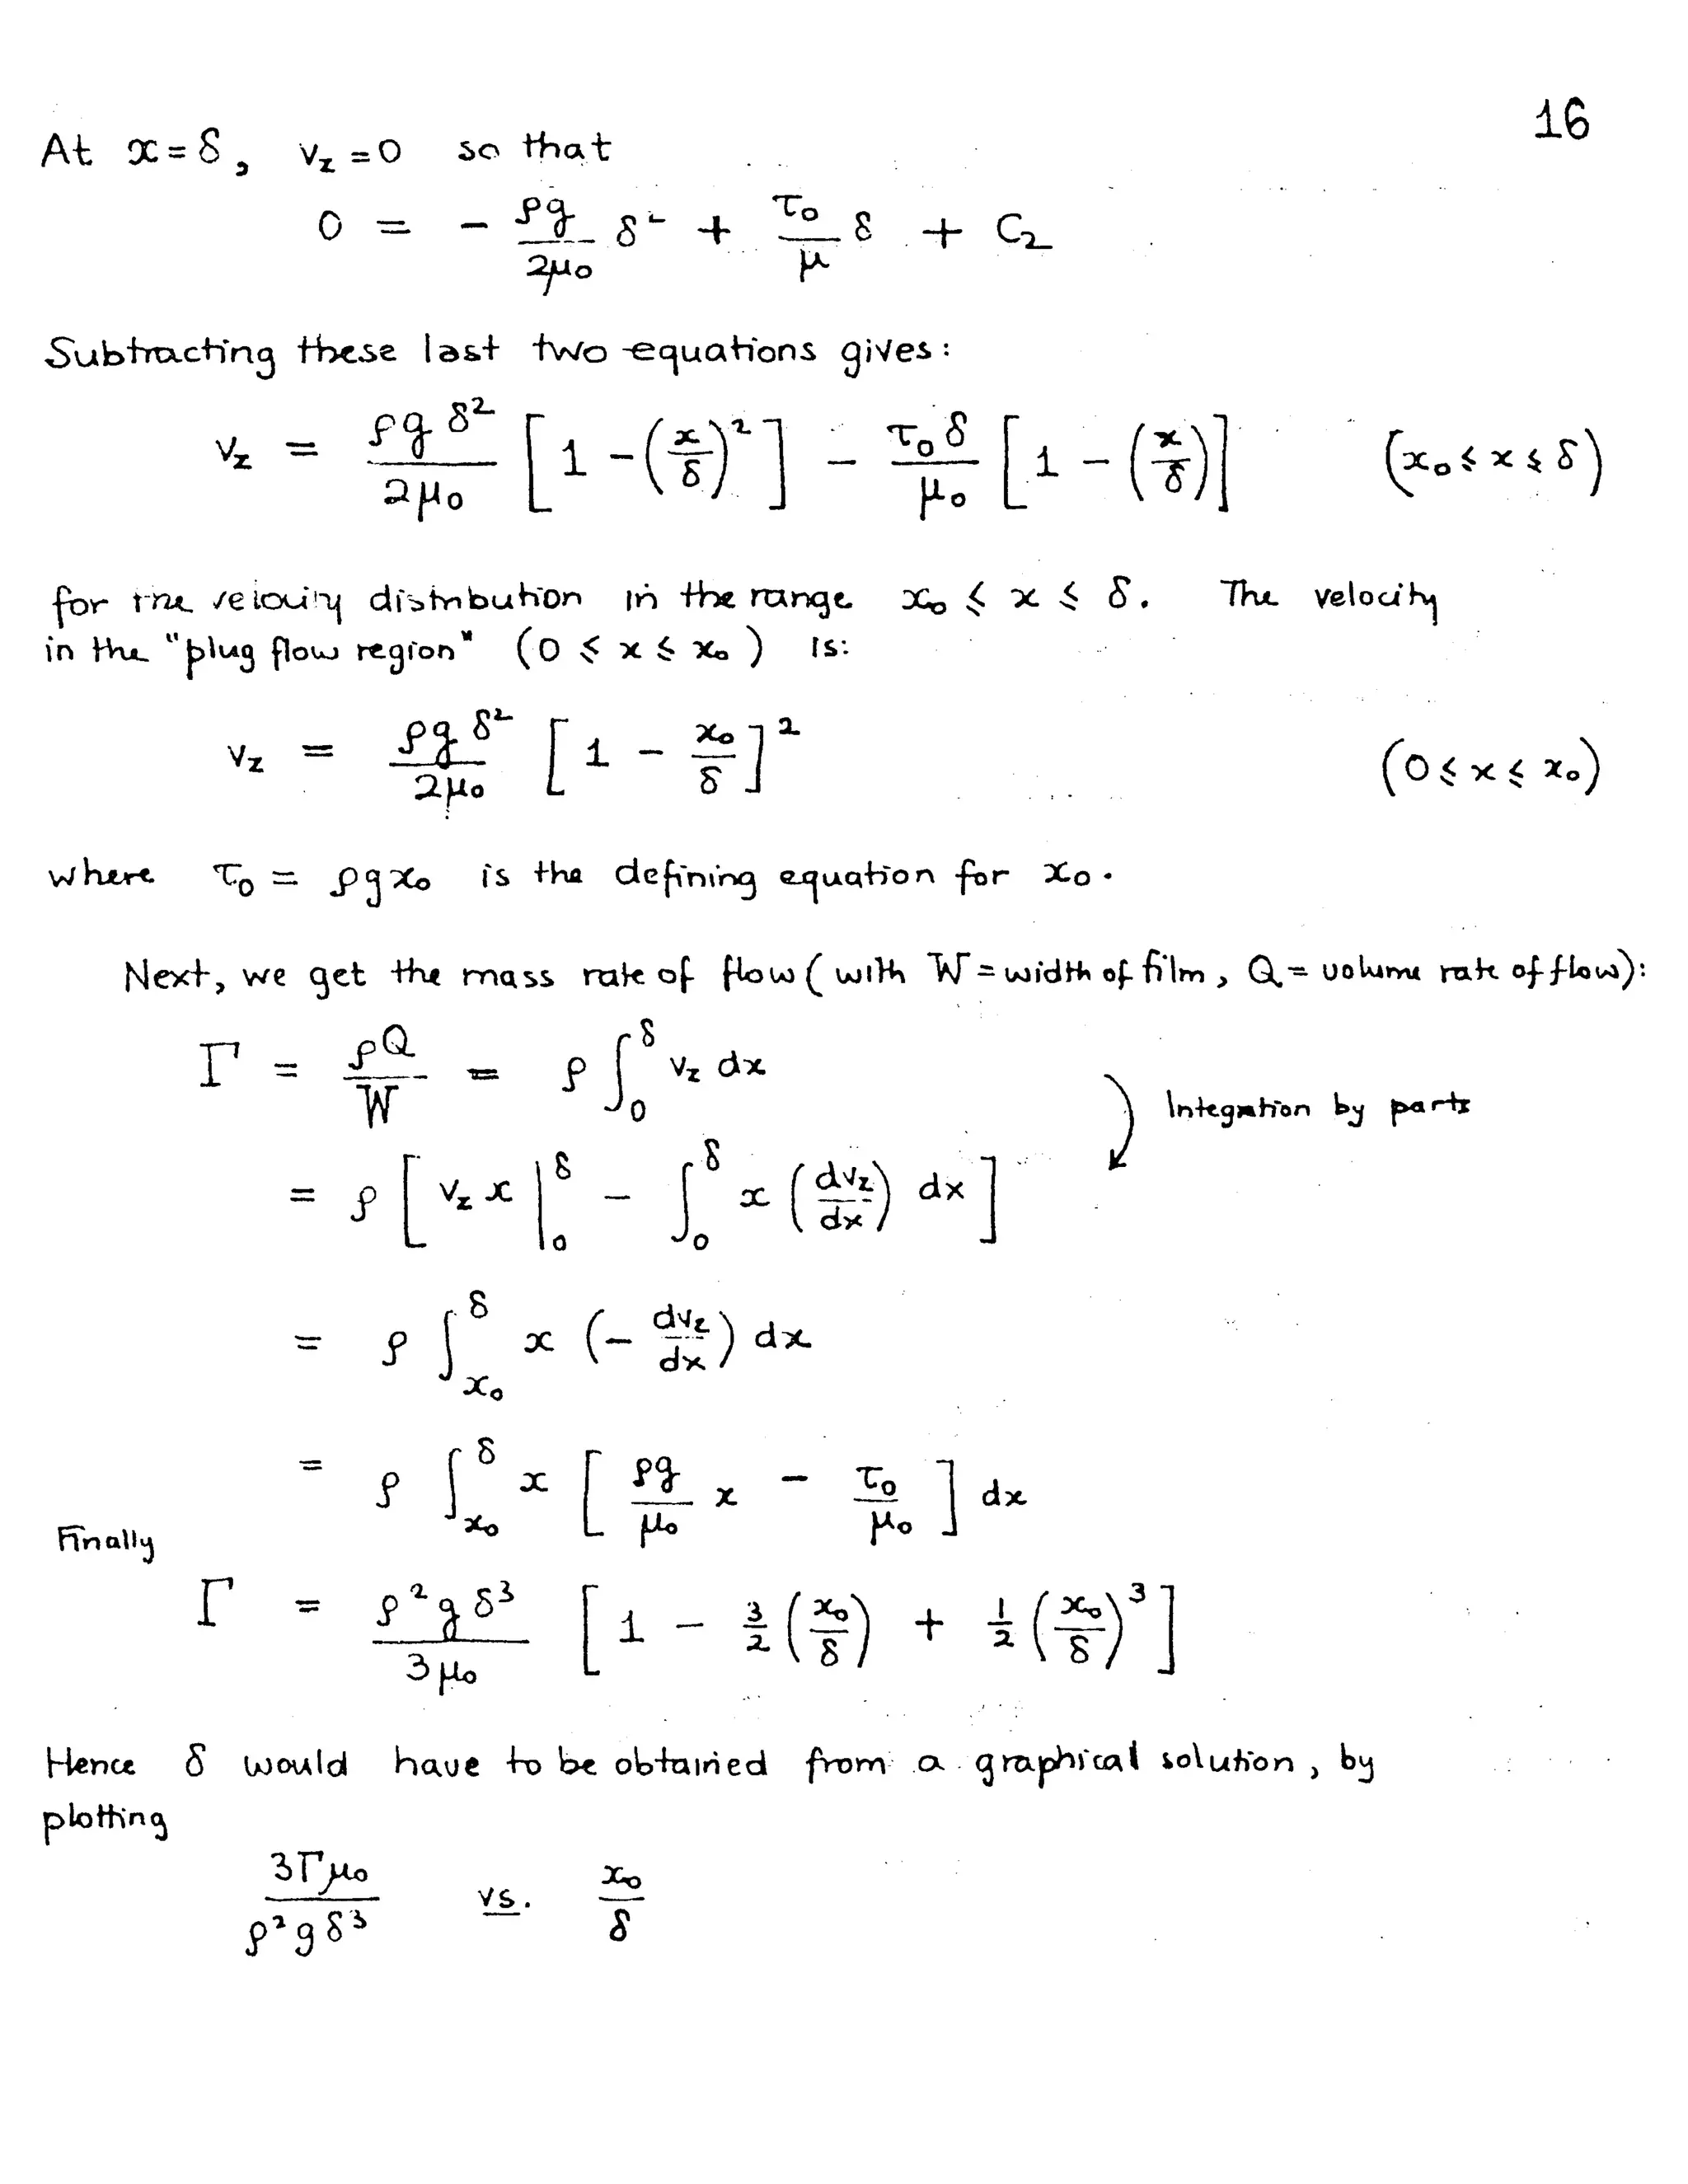 16
At x = δ, v_z = 0 so that
0 = - ρg/2μ₀ δ² + τ₀/μ δ + C₂
Subtracting these last two equations gives:
v_z = ρgδ²/2μ₀ [1 - (x/δ)²] - τ₀δ/μ₀ [1 - (x/δ)] (x₀ ≤ x ≤ δ)
for the velocity distribution in the range x₀ ≤ x ≤ δ. The velocity
in the "plug flow region" (0 ≤ x ≤ x₀) is:
v_z = ρgδ²/2μ₀ [1 - x₀/δ]² (0 ≤ x ≤ x₀)
where τ₀ = ρgx₀ is the defining equation for x₀.
Next, we get the mass rate of flow (with W = width of film, Q = volume rate of flow):
Γ = ρQ/W = ρ ∫₀^δ v_z dx
Integration by parts
= ρ [v_z x |₀^δ - ∫₀^δ x (dv_z/dx) dx]
= ρ ∫_x₀^δ x (- dv_z/dx) dx
= ρ ∫_x₀^δ x [ρg/μ₀ x - τ₀/μ₀] dx
Finally
Γ = ρ²gδ³/3μ₀ [1 - 3/2 (x₀/δ) + 1/2 (x₀/δ)³]
Hence δ would have to be obtained from a graphical solution, by
plotting
3Γμ₀/ρ²gδ³ vs. x₀/δ